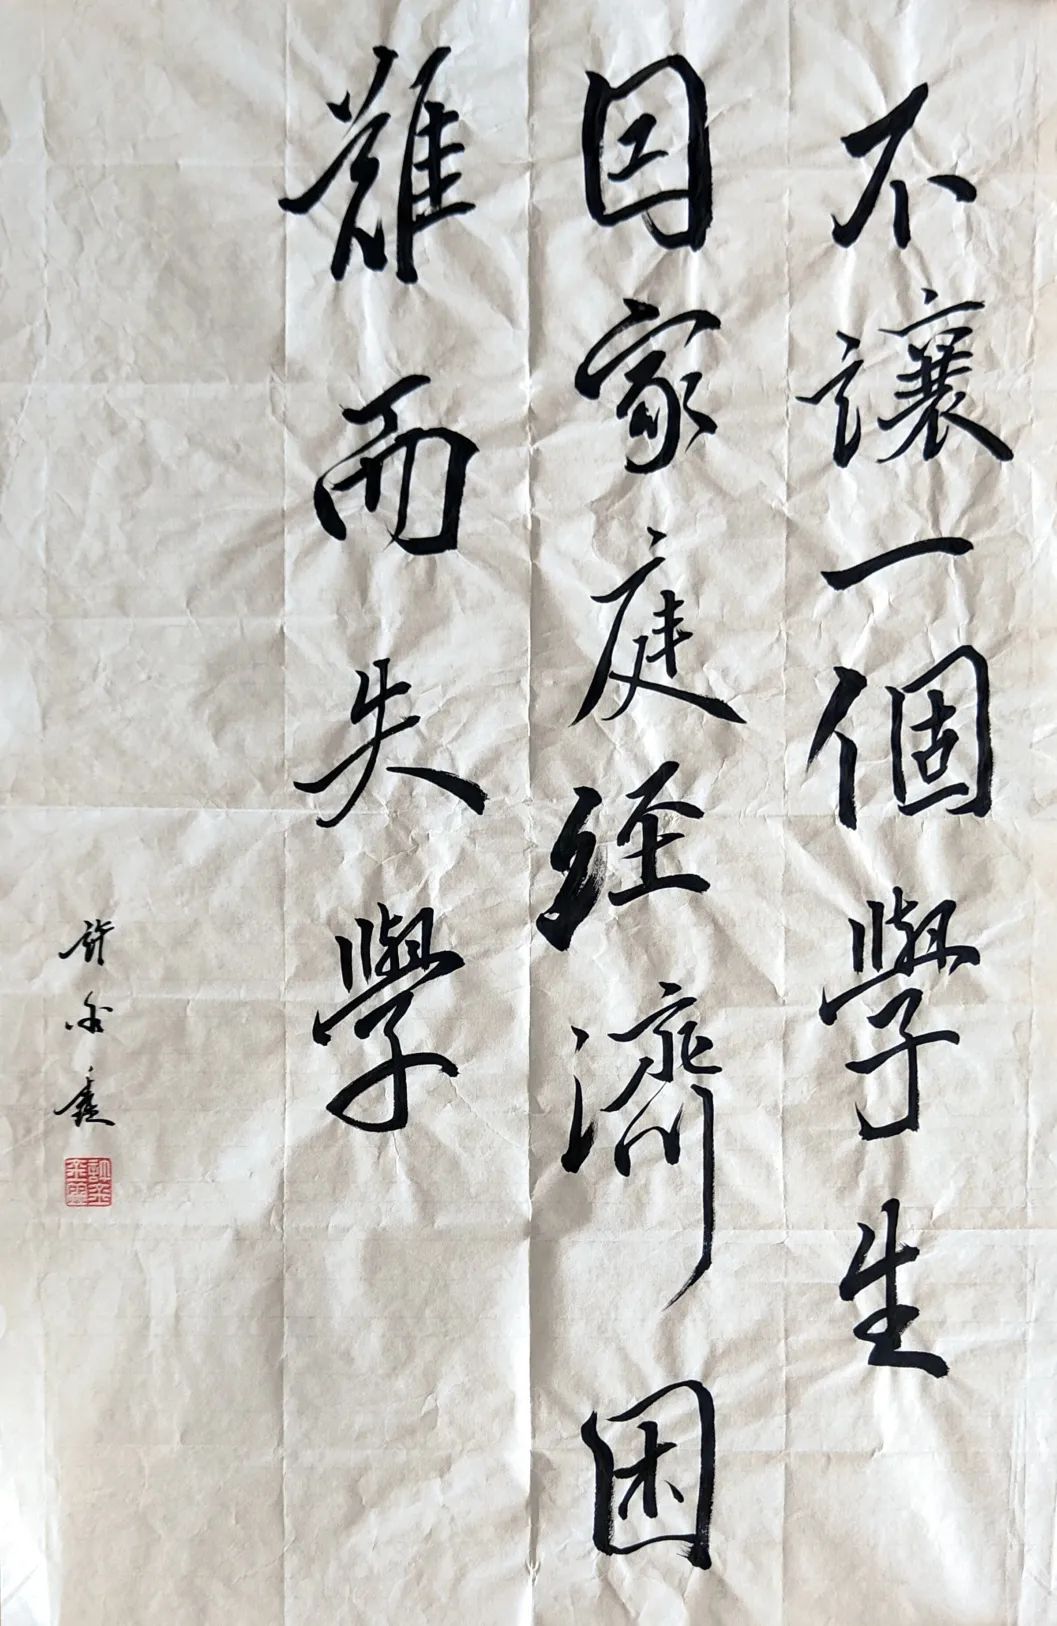 不讓一個學生
因家庭经濟困
難而失學
許永鑫